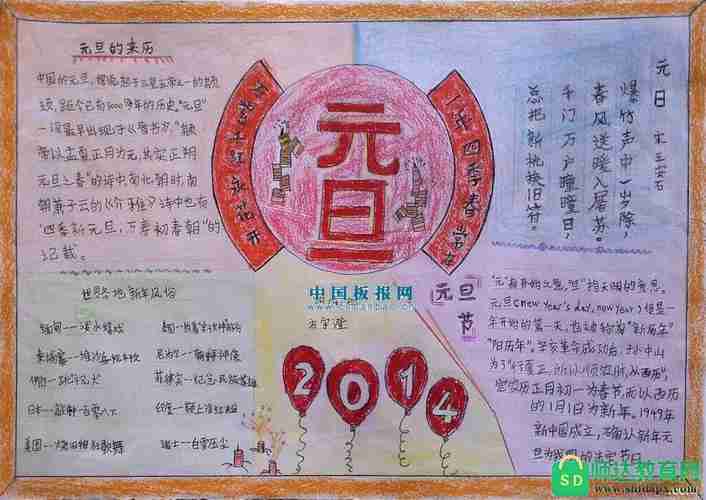 元旦的来历
中国的元旦,据说起于三皇五帝之一的颛
顼,距今已有3000多年的历史。"元旦"
一词最早出现于《晋书》:"颛
帝以孟夏正月为元,其实正朔
元旦之春"的诗中。南北朝时,南
朝萧子云的《介雅》诗中也有
"四季新元旦,万寿初春朝"的
记载。
万紫千红永花开
元旦
一年四季春常在
元日 宋 王安石
爆竹声中一岁除,
春风送暖入屠苏。
千门万户曈曈日,
总把新桃换旧符。
世界各地新年风俗
缅甸—泼水嬉戏
伊朗—
日本—敲钟一百零八下
英国—
印度—
瑞士—
中国板报网
元旦节
2014
"元"有开始之意,"旦"指天明的意思。
元旦(New Year's day, new year)便是一
年开始的第一天,也被称为"新历年"
"阳历年"。辛亥革命成功后,孙中山
为了"行夏正,所以顺农时,从西历",
定农历正月初一为春节,而以西历
的1月1日为新年。1949年
新中国成立,
旦为我们的法定节日
SD
师达教育网
www.shidapx.com